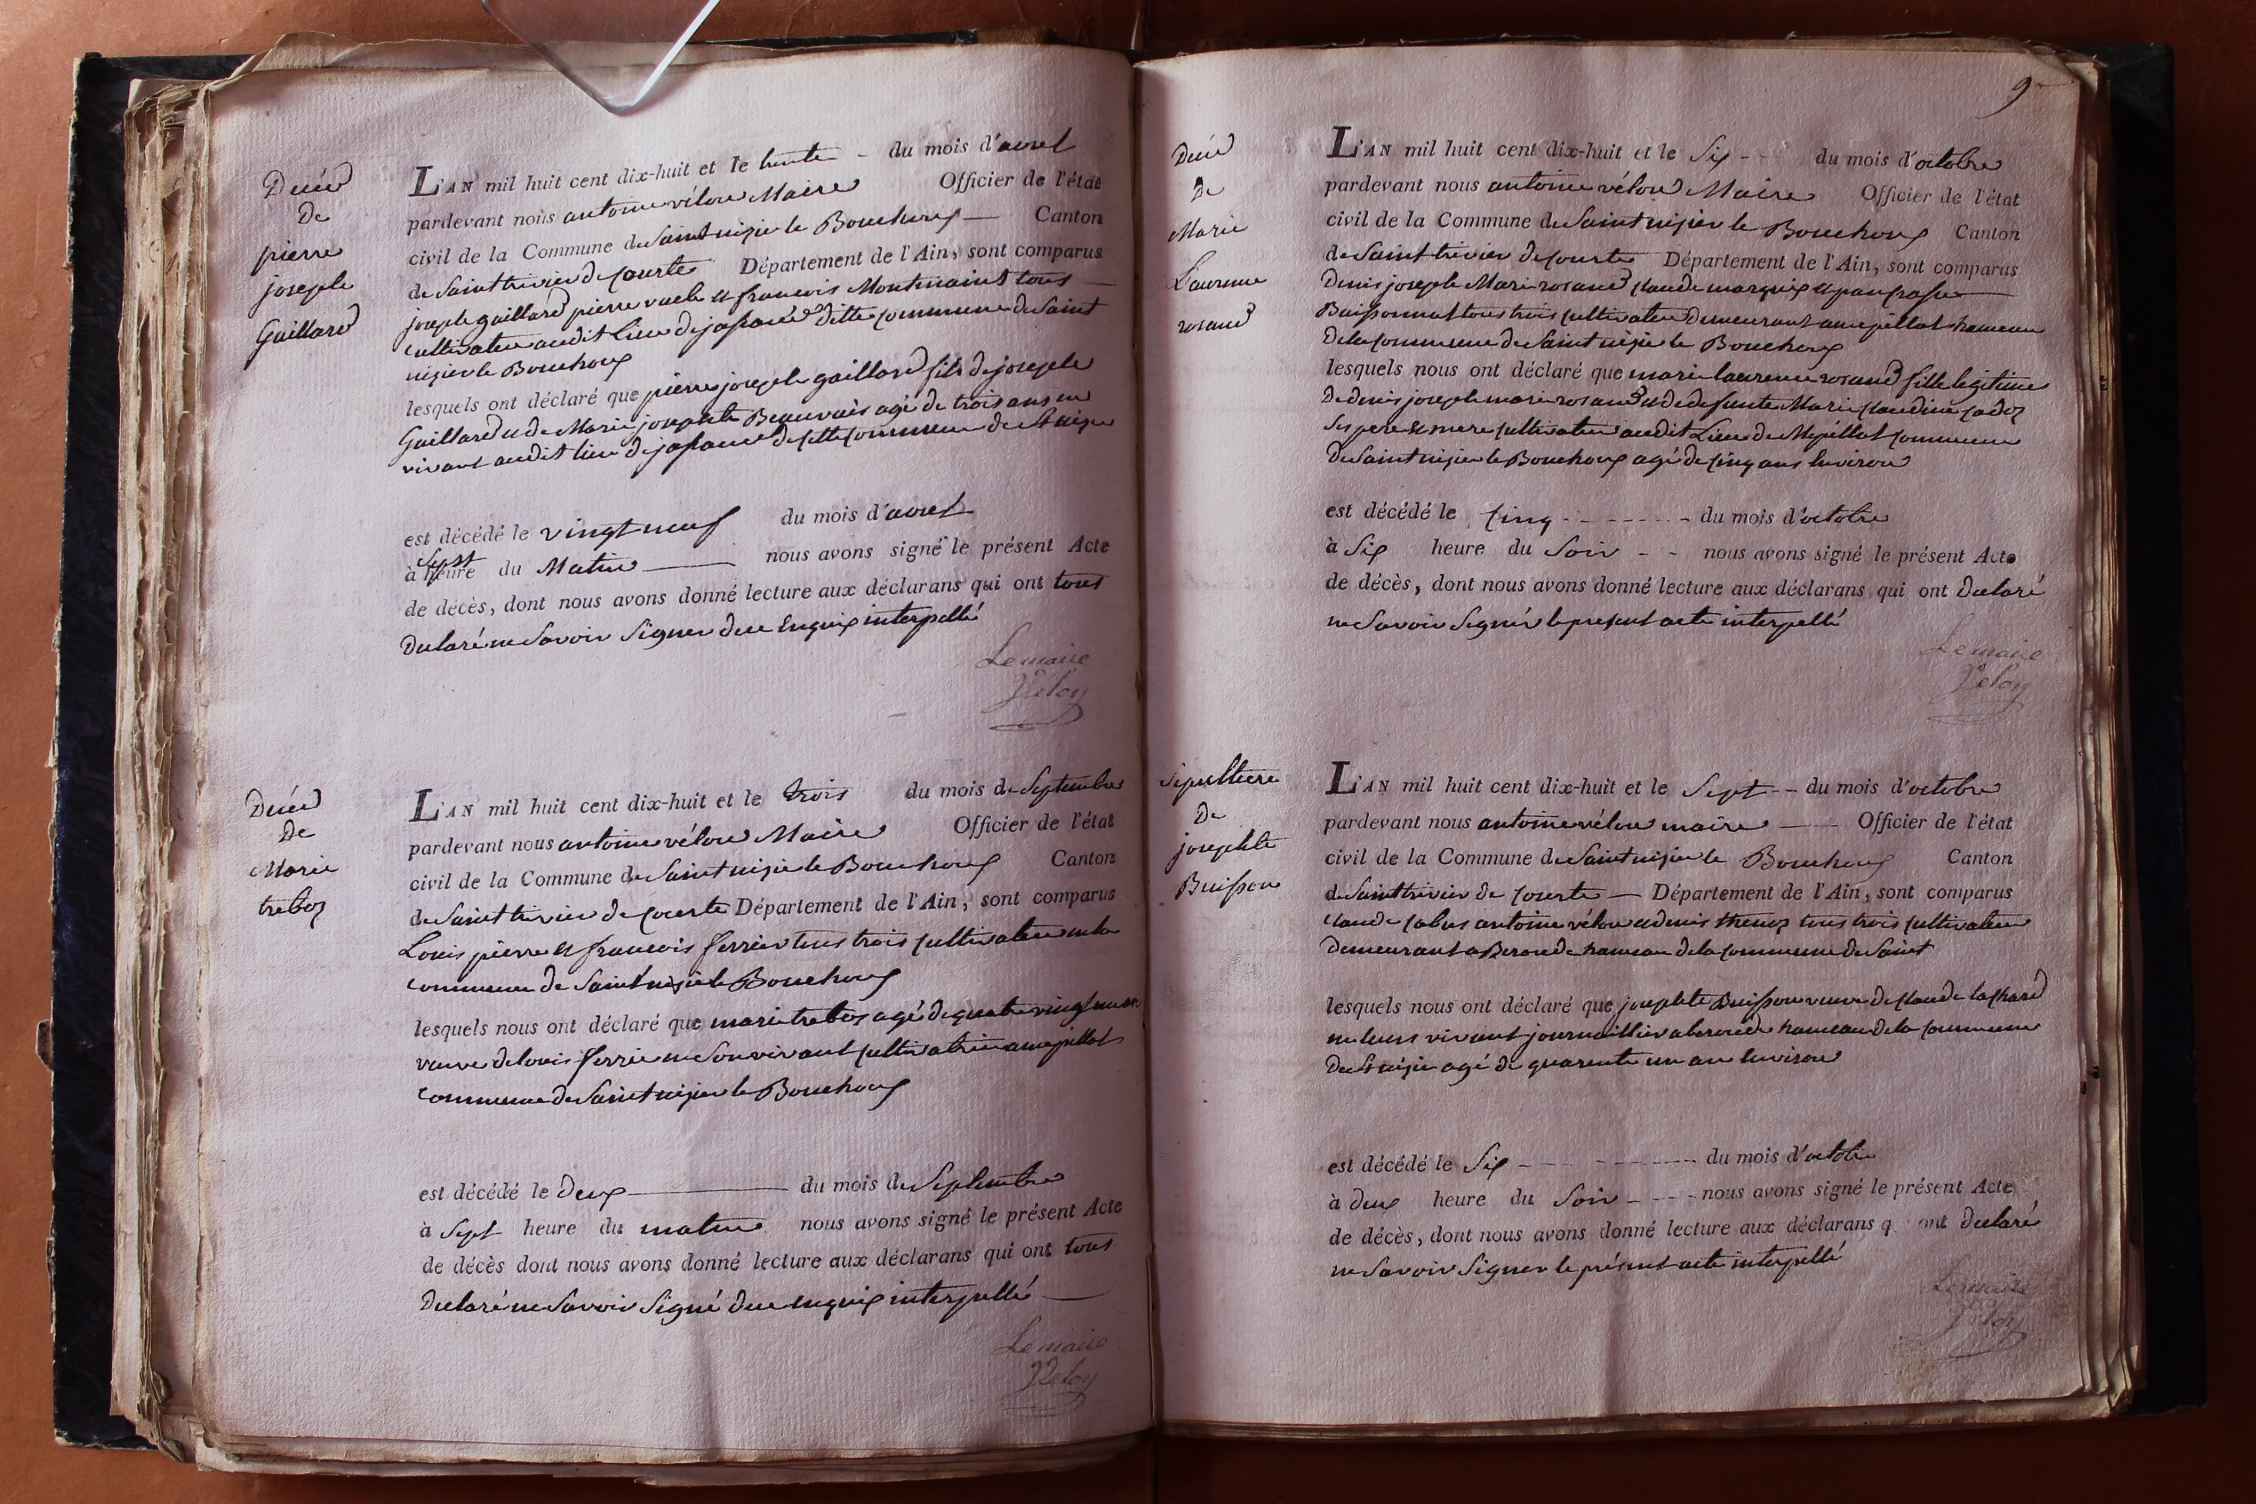 Décéd
De
pierre
joseph
Gaillard
L'AN mil huit cent dix-huit et le trente - du mois d'avril
pardevant nous antoine vélon Maire Officier de l'état
civil de la Commune de Saint nizier le Bouchoux — Canton
de Saint trivier de Courtes Département de l'Ain, sont comparus
joseph gaillard pierre et francois tous
cultivateur audit Lieu de ditte commune de Saint
nizier le Bouchoux
lesquels ont déclaré que pierre joseph gaillard fils de joseph
Gaillard et de Marie josephte Beauvais agé de trois ans
vivant audit lieu de de cette commune de St nizier
est décédé le vingt neuf du mois d'avril
à Sept heure du Matin — nous avons signé le présent Acte
de décès, dont nous avons donné lecture aux déclarans qui ont tous
Declaré ne Savoir Signer de ce Enquis interpellé
Le maire
Vélon
Décéd
De
Marie
treboz
L'AN mil huit cent dix-huit et le trois du mois de Septembre
pardevant nous antoine vélon Maire Officier de l'état
civil de la Commune de Saint nizier le Bouchoux Canton
de Saint trivier de Courtes Département de l'Ain, sont comparus
Louis pierre et francois ferrier tous trois cultivateur en la
commune de Saint nizier le Bouchoux
lesquels nous ont déclaré que marie treboz agé de quatre vingt un an
veuve de louis ferrier en Son vivant cultivatrice a mépillat
commune de Saint nizier le Bouchoux
est décédé le deux — du mois de Septembre
à Sept heure du matin nous avons signé le présent Acte
de décès dont nous avons donné lecture aux déclarans qui ont tous
Declaré ne Savoir Signé de ce enquis interpellé —
Le maire
Vélon
9
Décéd
De
Marie
Laurence
rosand
L'AN mil huit cent dix-huit et le Six - - du mois d'octobre
pardevant nous antoine vélon Maire Officier de l'état
civil de la Commune de Saint nizier le Bouchoux Canton
de Saint trivier de Courtes Département de l'Ain, sont comparus
Denis joseph Marie rosand Claude marguis et pancrasse —
Buissonnat tous trois cultivateur demeurant a mépillat hameau
De la commune de Saint nizier le Bouchoux
lesquels nous ont déclaré que marie laurence rosand fille legitime
De denis joseph marie rosand et de defunte Marie Claudine Cadoz
Ses pere et mere cultivateur audit Lieu de Mépillat commune
De Saint nizier le Bouchoux agé de Cinq ans Environ
est décédé le Cinq - - - - - - - du mois d'octobre
à Six heure du Soir - - nous avons signé le présent Acte
de décès, dont nous avons donné lecture aux déclarans qui ont Declaré
ne Savoir Signér le present acte interpellé
Le maire
Vélon
Sépulture
De
josephte
Buisson
L'AN mil huit cent dix-huit et le Sept - - du mois d'octobre
pardevant nous antoine vélon maire — Officier de l'état
civil de la Commune de Saint nizier le Bouchoux Canton
de Saint trivier de Courtes — Département de l'Ain, sont comparus
Claude antoine vélon et denis tous trois cultivateur
Demeurant a Beroude hameau de la commune de Saint
lesquels nous ont déclaré que josephte Buisson veuve de Claude
en leurs vivant journaillier a beroude hameau de la commune
De St nizier agé de quarente un an Environ
est décédé le Six - - - - - - - du mois d'octobre
à deux heure du Soir - - - nous avons signé le présent Acte
de décès, dont nous avons donné lecture aux déclarans q ont Declaré
ne Savoir Signer le présent acte interpellé
Le maire
Vélon